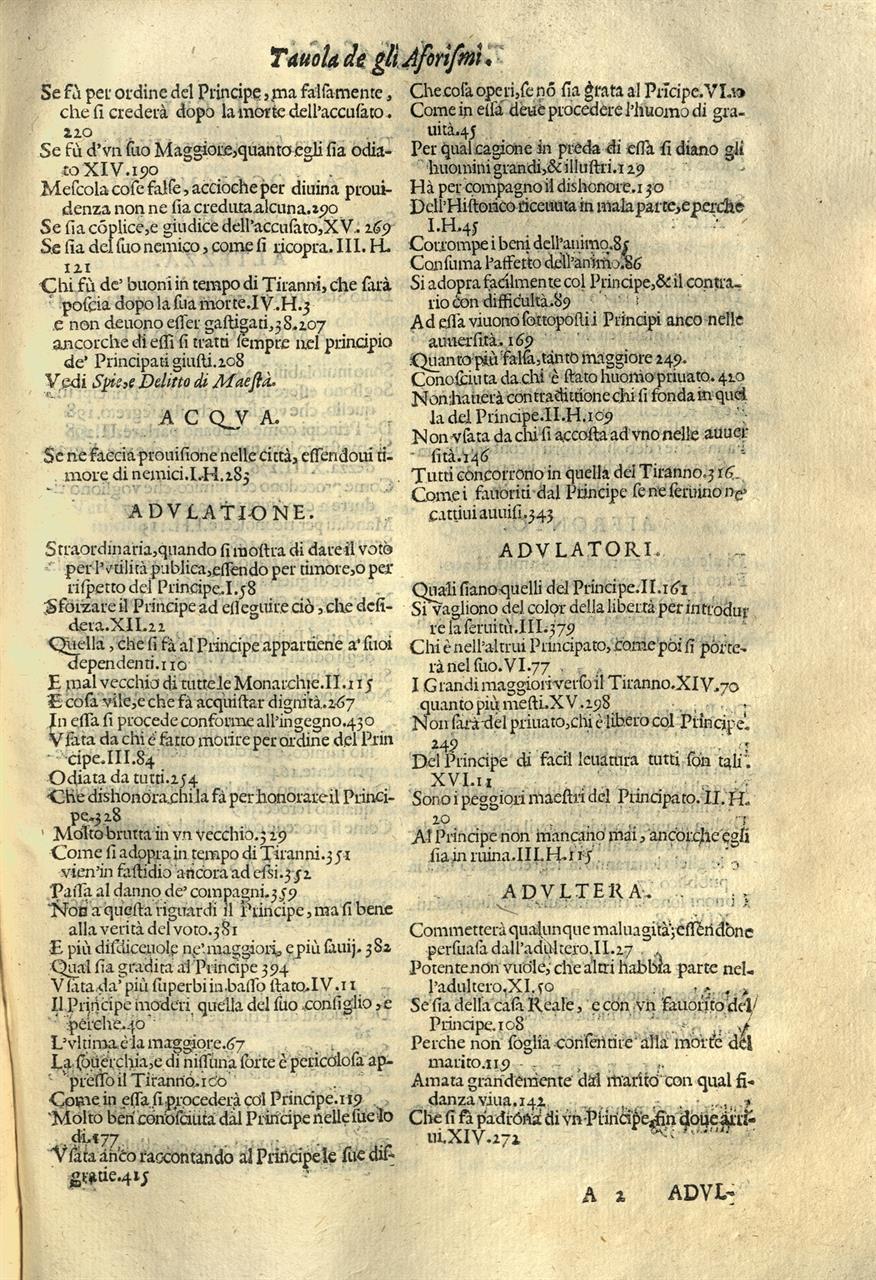 Tauola de gli Aforismi.
Se fù per ordine del Principe, ma falsamente,
che si crederà dopo la morte dell'accusato.
220
Se fù d'vn suo Maggiore, quanto egli sia odia-
to XIV.190
Mescola cose false, accioche per diuina proui-
denza non ne sia creduta alcuna.290
Se sia cōplice, e giudice dell'accusato, XV. 269
Se sia del suo nemico, come si ricopra. III. H.
121
Chi fù de' buoni in tempo di Tiranni, che sarà
poscia dopo la sua morte.IV.H.3
e non deuono esser gastigati, 38.207
ancorche di essi si tratti sempre nel principio
de' Principati giusti.208
Vedi Spie, e Delitto di Maestà.
ACQVA.
Se ne faccia prouisione nelle città, essendoui ti-
more di nemici.I.H.283
ADVLATIONE.
Straordinaria, quando si mostra di dare il voto
per l'vtilità publica, essendo per timore, o per
rispetto del Principe.I.58
Sforzare il Principe ad esseguire ciò, che desi-
dera.XII.22
Quella, che si fà al Principe appartiene a' suoi
dependenti.110
E mal vecchio di tutte le Monarchie.II.115
E cosa vile, e che fà acquistar dignità.267
In essa si procede conforme all'ingegno.430
Vsata da chi è fatto morire per ordine del Prin
cipe.III.84
Odiata da tutti.254
Che dishonora, chi la fà per honorare il Princi-
pe.328
Molto brutta in vn vecchio.329
Come si adopra in tempo di Tiranni.351
vien' in fastidio ancora ad essi.352
Passa al danno de' compagni.359
Non a questa riguardi il Principe, ma si bene
alla verità del voto.381
E più disdiceuole ne' maggiori, e più sauij. 382
Qual sia gradita al Principe 394
Vsata da' più superbi in basso stato.IV.11
Il Principe moderi quella del suo consiglio, e
perche.40
L'vltima è la maggiore.67
La souerchia, e di nissuna sorte è pericolosa ap-
presso il Tiranno.100
Come in essa si procederà col Principe.119
Molto ben conosciuta dal Principe nelle sue lo
di.177
Vsata anco raccontando al Principe le sue dis-
gratie.415
Che cosa operi, se nō sia grata al Prīcipe.VI.10
Come in essa deue procedere l'huomo di gra-
uità.45
Per qual cagione in preda di essa si diano gli
huomini grandi, & illustri.129
Hà per compagno il dishonore.130
Dell'Historico riceuuta in mala parte, e perche
I.H.45
Corrompe i beni dell'animo.85
Consuma l'affetto dell'animo.86
Si adopra facilmente col Principe, & il contra-
rio con difficultà.89
Ad essa viuono sottoposti i Principi anco nelle
auuersità. 169
Quanto più falsa, tanto maggiore 249.
Conosciuta da chi è stato huomo priuato. 420
Non hauerà contradittione chi si fonda in quel
la del Principe.II.H.109
Non vsata da chi si accosta ad vno nelle auuer
sità.146
Tutti concorrono in quella del Tiranno.316
Come i fauoriti dal Principe se ne seruino ne'
cattiui auuisi.343
ADVLATORI.
Quali siano quelli del Principe.II.161
Si vagliono del color della libertà per introdur
re la seruitù.III.379
Chi è nell'altrui Principato, come poi si porte-
rà nel suo.VI.77
I Grandi maggiori verso il Tiranno.XIV.70
quanto più mesti.XV.298
Non sarà del priuato, chi è libero col Principe.
249
Del Principe di facil leuatura tutti son tali.
XVI.11
Sono i peggiori maestri del Principato. II.H.
20
Al Principe non mancano mai, ancorche egli
sia in ruina.III.H.115
ADVLTERA.
Commetterà qualunque maluagità, essendone
persuasa dall'adultero.II.27
Potente non vuole, che altri habbia parte nel-
l'adultero.XI.50
Se sia della casa Reale, e con vn fauorito del
Principe.108
Perche non soglia consentire alla morte del
marito.119
Amata grandemente dal marito con qual fi-
danza viua.142
Che si fà padrona di vn Principe, fin doue arri-
ui.XIV.272
A 2 ADVL-